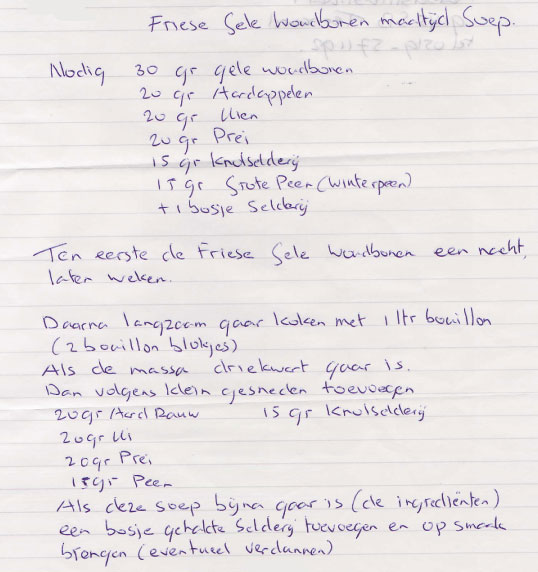 Friese Gele Woudbonen maaltijd Soep.
Nodig 30 gr gele woudbonen
20 gr Aardappelen
20 gr Uien
20 gr Prei
15 gr Knolselderij
15 gr Grote Peen (winterpeen)
+ 1 bosje Selderij
Ten eerste de Friese Gele Woudbonen een nacht,
laten weken.
Daarna langzaam gaar koken met 1 ltr bouillon
(2 bouillon blokjes)
Als de massa driekwart gaar is.
Dan volgens klein gesneden toevoegen
20gr Aard Rauw 15 gr Knolselderij
20gr Ui
20gr Prei
15gr Peen
Als deze soep bijna gaar is (de ingrediënten)
een bosje gehakte Selderij toevoegen en op smaak
brengen (eventueel verdunnen)